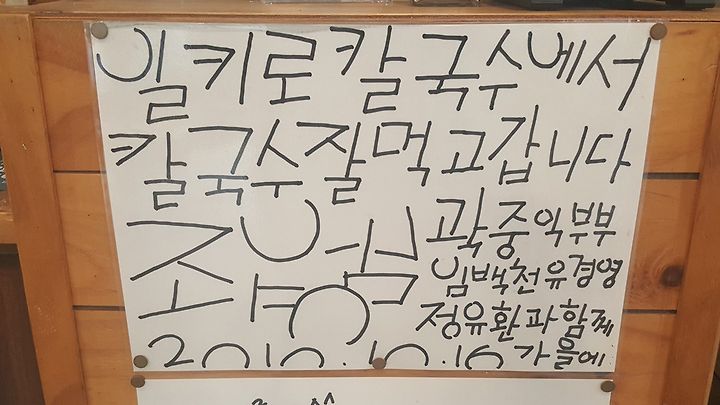 일키로칼국수에서
칼국수잘먹고갑니다
조영남
곽중익부부
임백천유경영
정유환과함께
2010.10.16 가을에